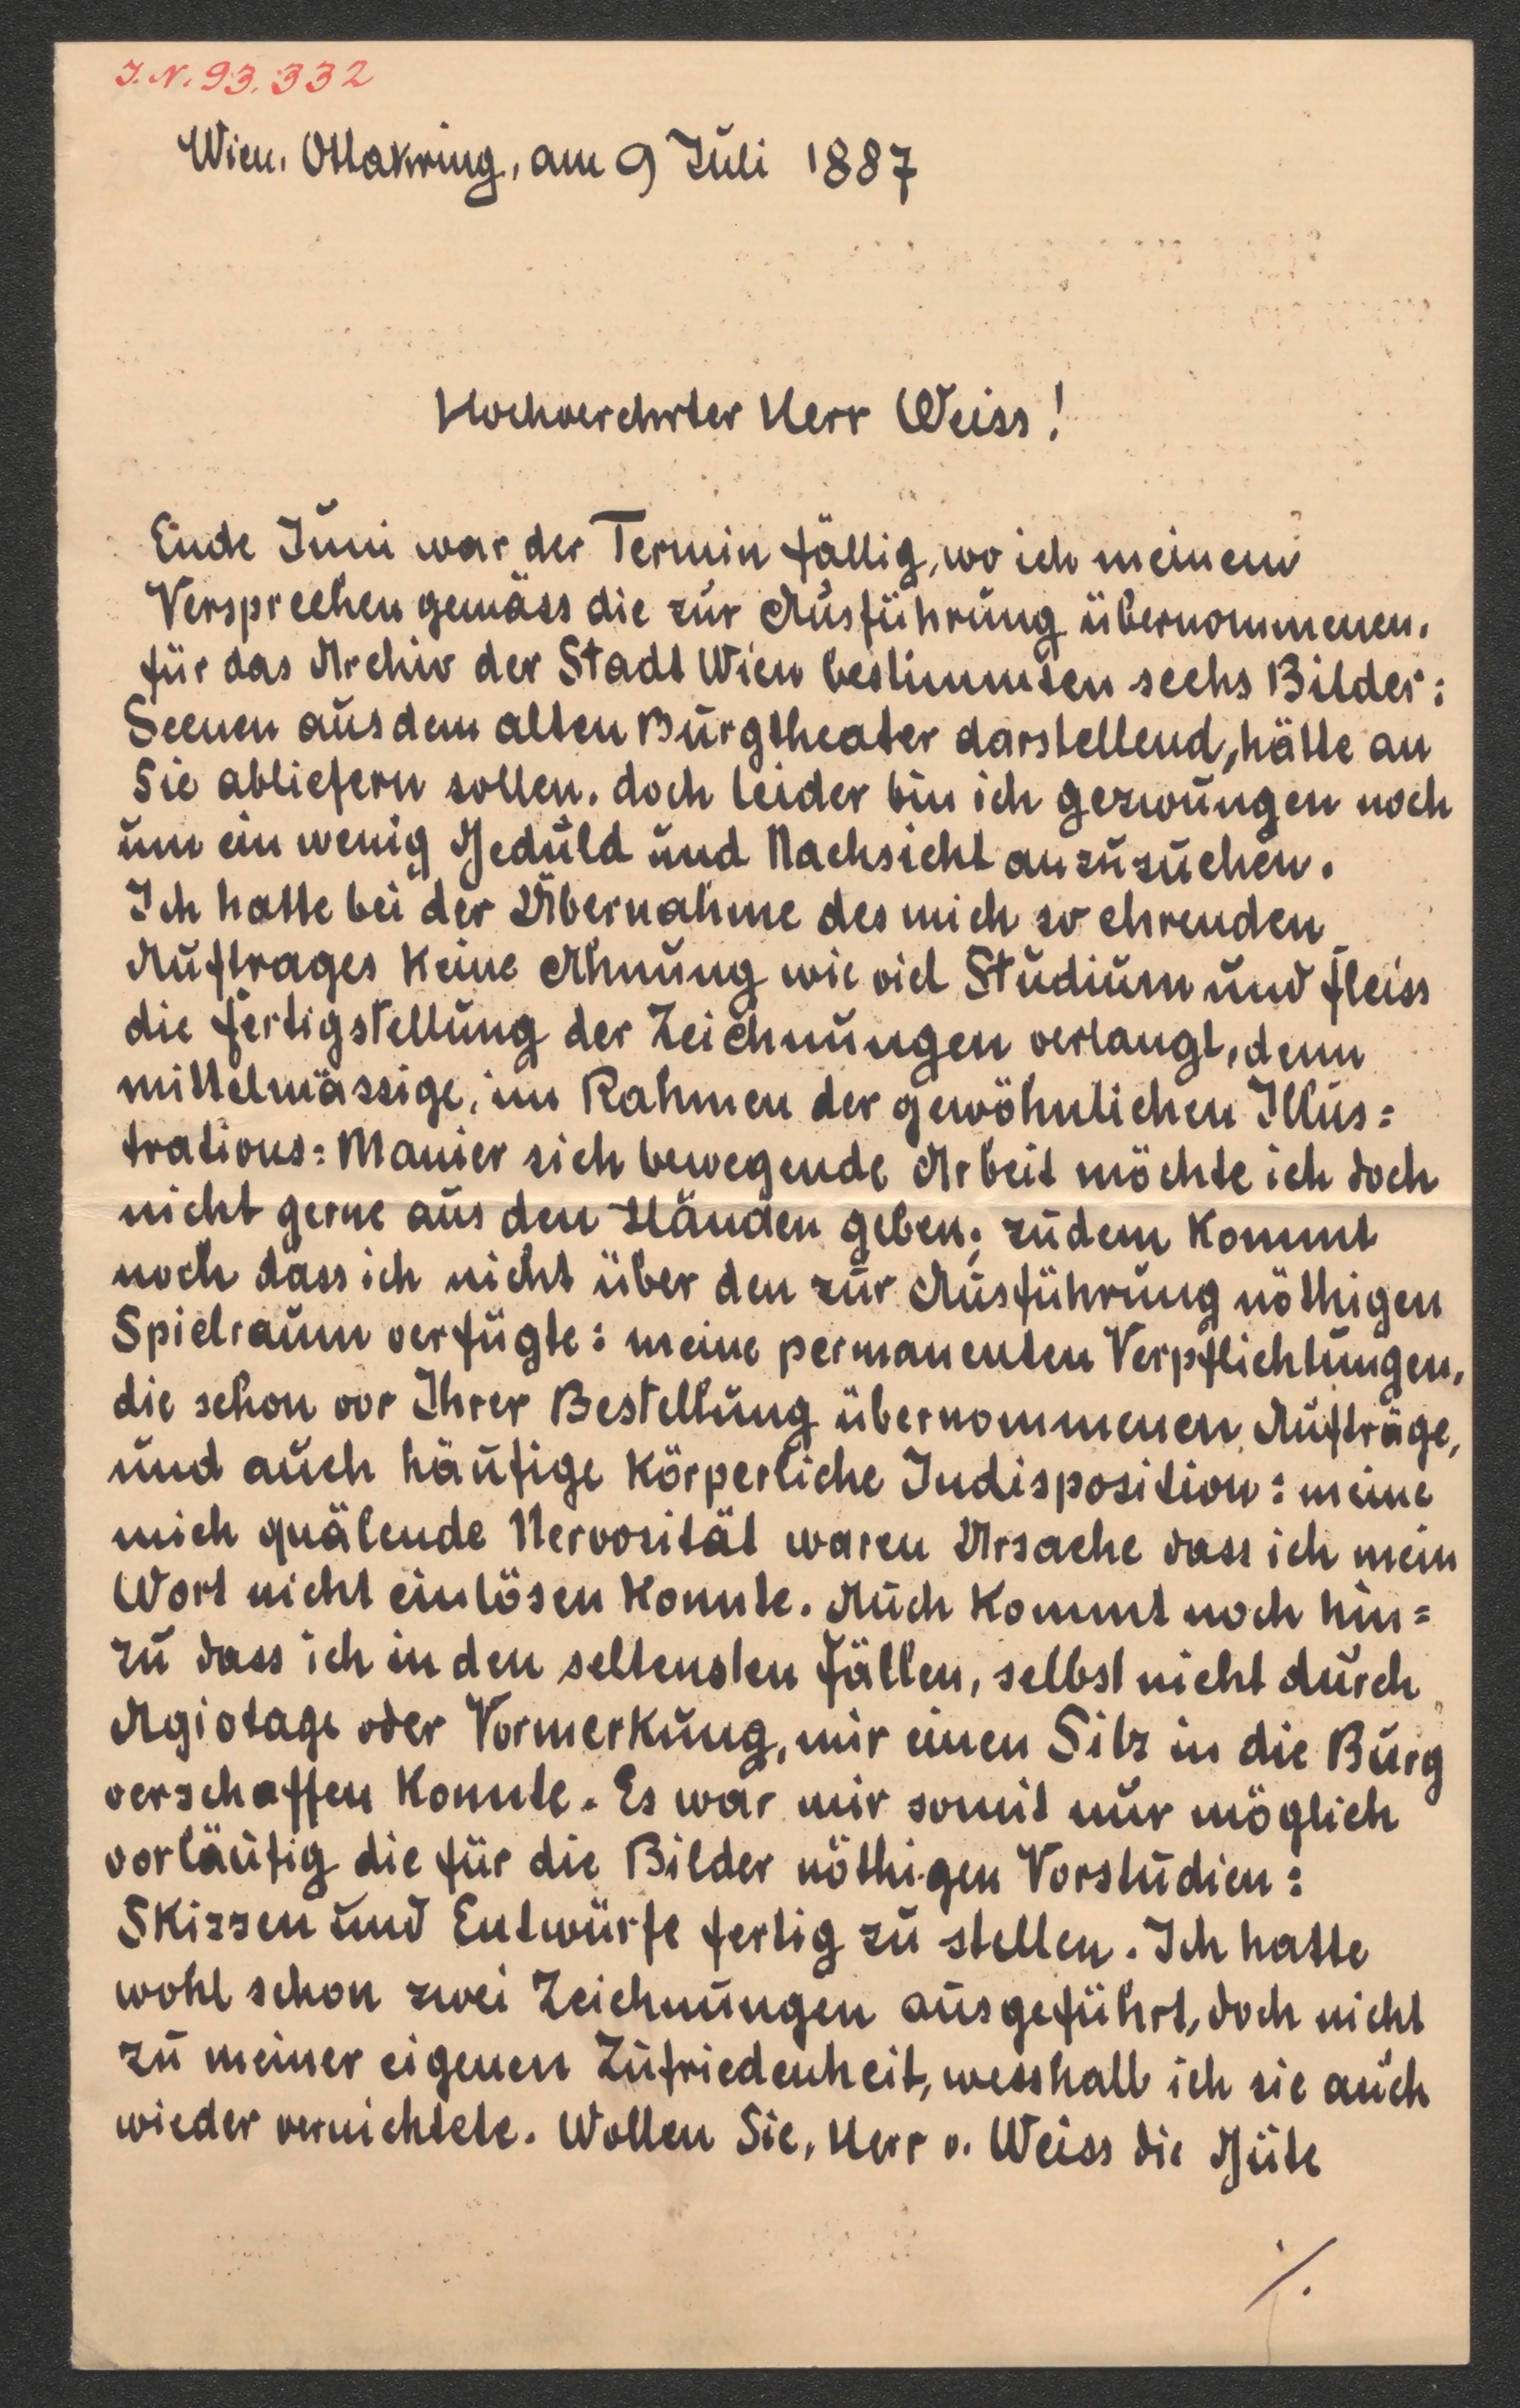 J.N. 93.332
Wien. Ottakring, am 9 Juli 1887
Hochverehrter Herr Weiss!
Ende Juni war der Termin fällig, wo ich meinem
Versprechen gemäss die zur Ausführung übernommenen,
für das Archiv der Stadt Wien bestimmten sechs Bilder:
Scenen aus dem alten Burgtheater darstellend, hätte an
Sie abliefern sollen. doch leider bin ich gezwungen noch
um ein wenig Geduld und Nachsicht anzusuchen.
Ich hatte bei der Übernahme des mich so ehrenden
Auftrages keine Ahnung wie viel Studium und Fleiss
die Fertigstellung der Zeichnungen verlangt, denn
mittelmässige, im Rahmen der gewöhnlichen Illus=
trations=Manier sich bewegende Arbeit möchte ich doch
nicht gerne aus den Händen geben; zudem kommt
noch dass ich nicht über den zur Ausführung nöthigen
Spielraum verfügte: meine permanenten Verpflichtungen,
die schon vor Ihrer Bestellung übernommenen Aufträge,
und auch häufige körperliche Indisposition: meine
mich quälende Nervosität waren Ursache dass ich mein
Wort nicht einlösen konnte. Auch kommt noch hin=
zu dass ich in den seltensten Fällen, selbst nicht durch
Agiotage oder Vormerkung, mir einen Sitz in die Burg
verschaffen konnte. Es war mir somit nur möglich
vorläufig die für die Bilder nöthigen Vorstudien:
Skizzen und Entwürfe fertig zu stellen. Ich hatte
wohl schon zwei Zeichnungen ausgeführt, doch nicht
zu meiner eigenen Zufriedenheit, wesshalb ich sie auch
wieder vernichtete. Wollen Sie, Herr v. Weiss die Güte
./.